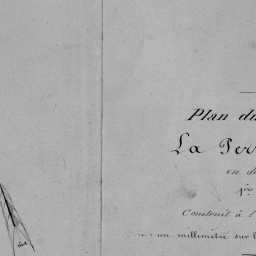 Plan du
La Per
en d
1re
Construit à l
un millimètre sur l